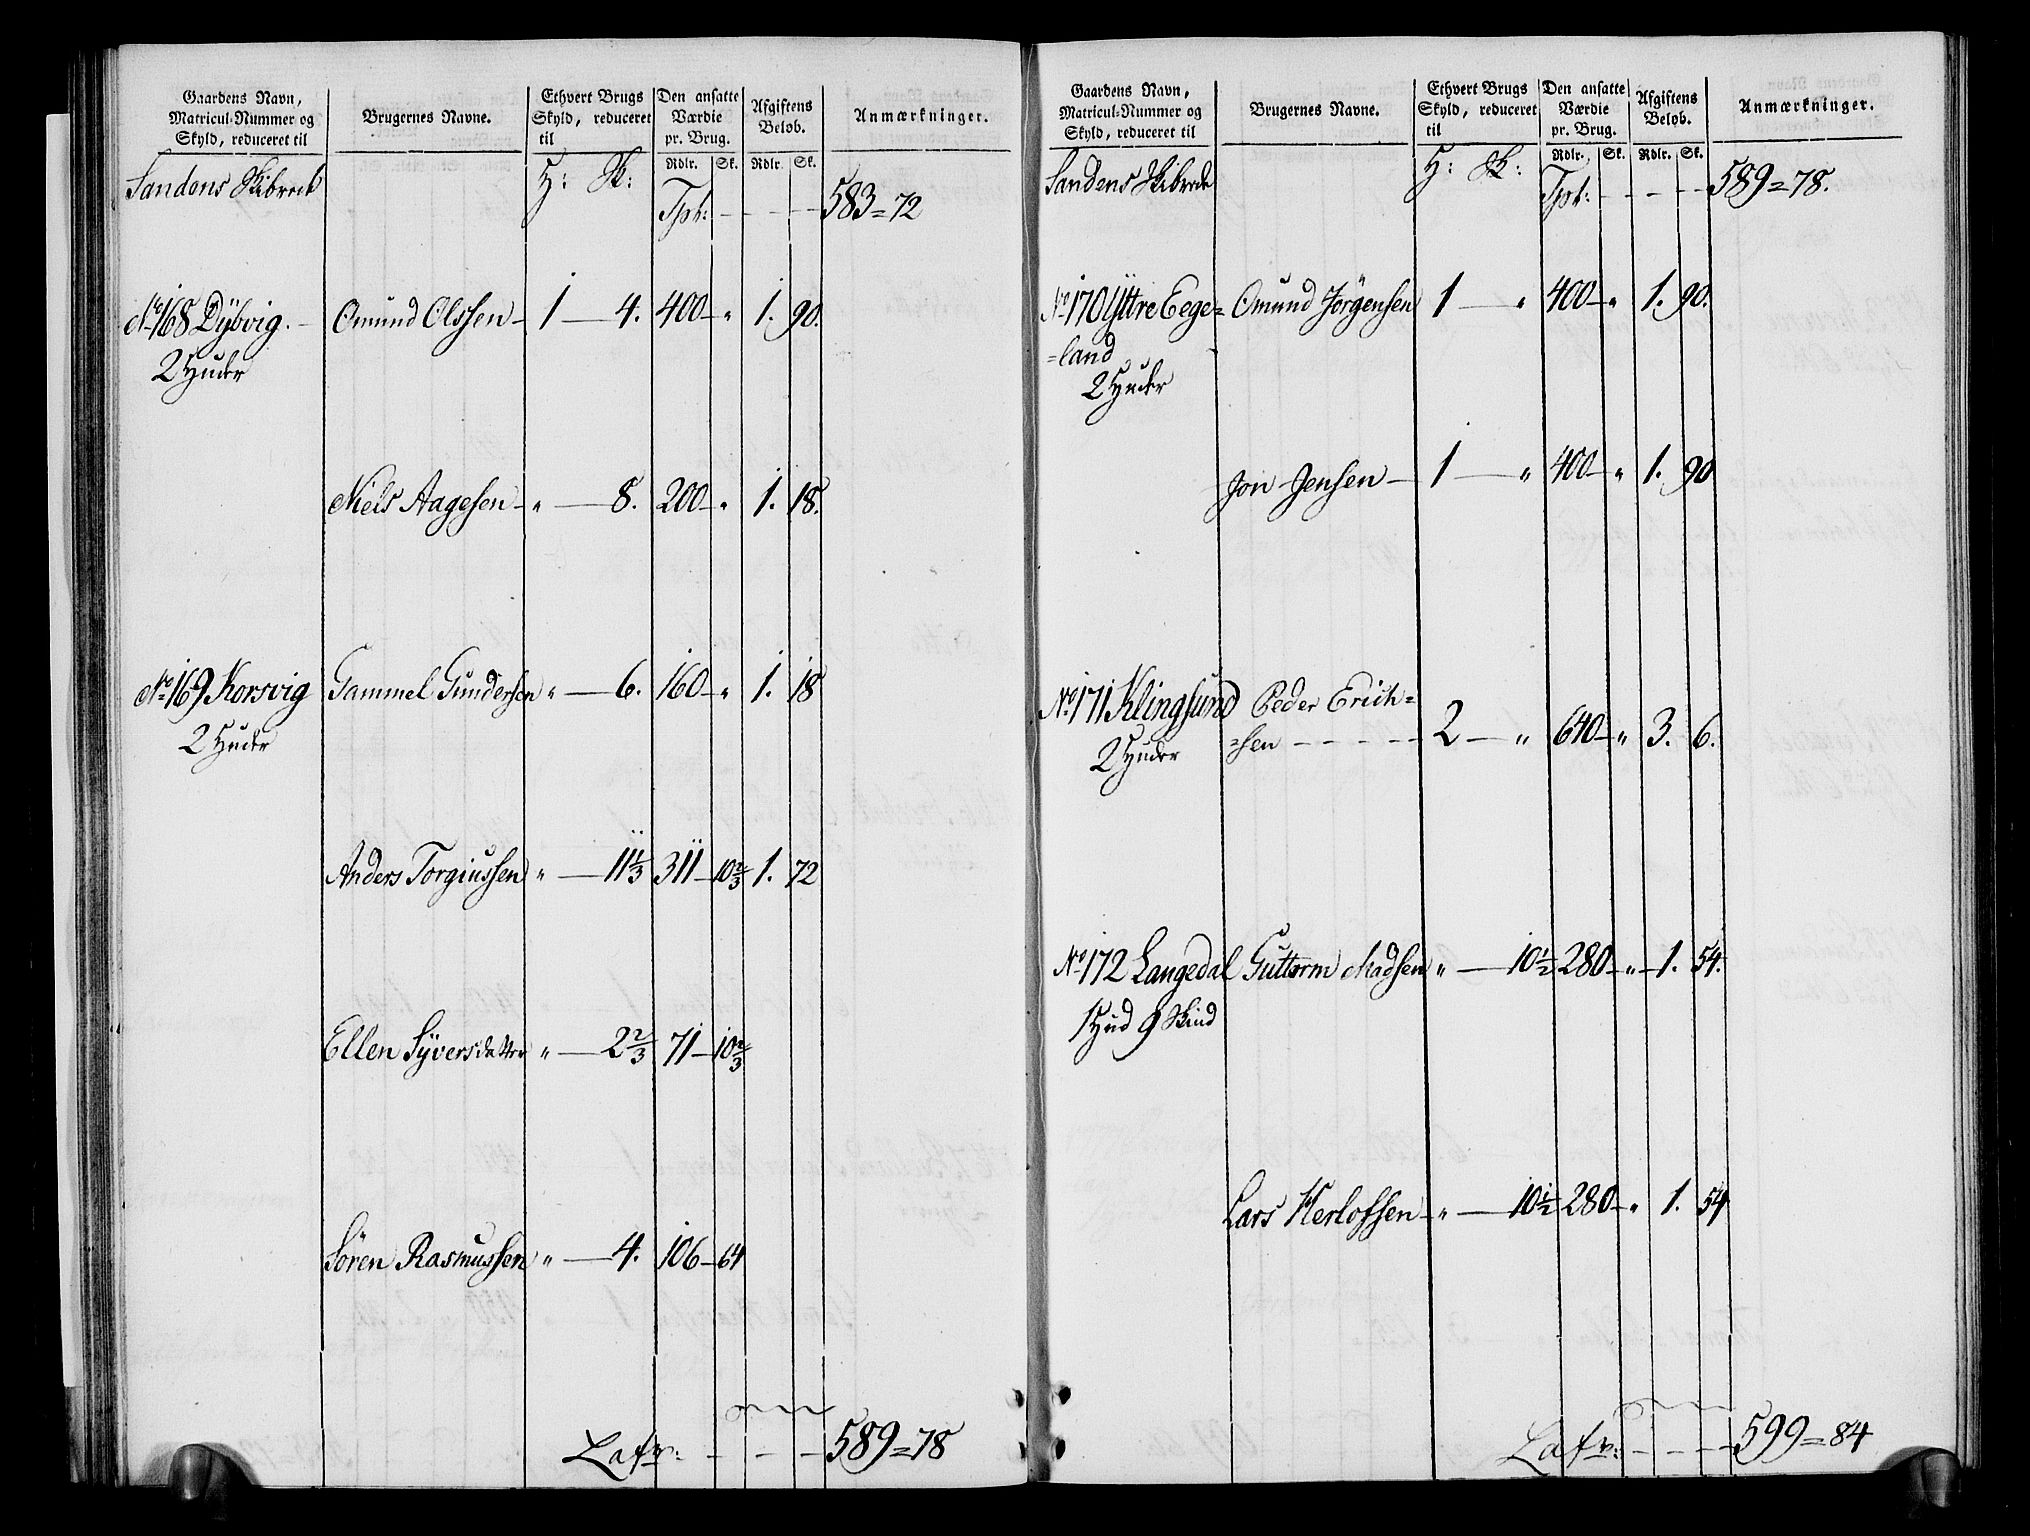 Gaardens Navn, Matricul-Nummer og Skyld, reduceret til
Brugernes Navne.
Ethvert Brugs Skyld, reduceret til
Den ansatte Værdie pr. Brug.
Afgiftens Beløb.
Anmærkninger.
Rdlr. Sk. Rdlr. Sk.
Sandens Skibrede H: Sk: Tpt: - - - - 583=72
No 168 Dÿbvig. - Omund Olssen - 1 - 4. 400 - " 1. 90.
2 Huder
Niels Aagesen - " - 8. 200 - " 1. 18.
No 169 Korsvig Gammel Gundersen " - 6. 160 - " 1. 18
2 Huder
Anders Torgiussen " - 11 1/3 311 - 10 2/3 1. 72
Ellen Sÿversdatter " - 2 2/3 71 - 10 2/3
Sören Rasmussen " - 4. 106 - 64
Lat - - - 589=78
Gaardens Navn, Matricul-Nummer og Skyld, reduceret til
Brugernes Navne.
Ethvert Brugs Skyld, reduceret til
Den ansatte Værdie pr. Brug.
Afgiftens Beløb.
Anmærkninger.
Rdlr. Sk. Rdlr. Sk.
Sandens Skibrede H: Sk: Tpt: - - - - 589=78.
No 170 Ÿttre Eege= Omund Jörgensen 1 - " 400 - " 1. 90.
=land
2 Huder
Jon Jensen - 1 - " 400 - " 1. 90
No 171 Klingsund Peder Erich=
2 Huder =sen - - - - - 2 - " 640 - " 3. 6.
No 172 Langedal Guttorm Madsen " - 10 1/2 280 - " - 1. 54.
1 Hud 9 Skind
Lars Herlofsen - " - 10 1/2 280 - " 1. 54
Lat - - - - 599=84